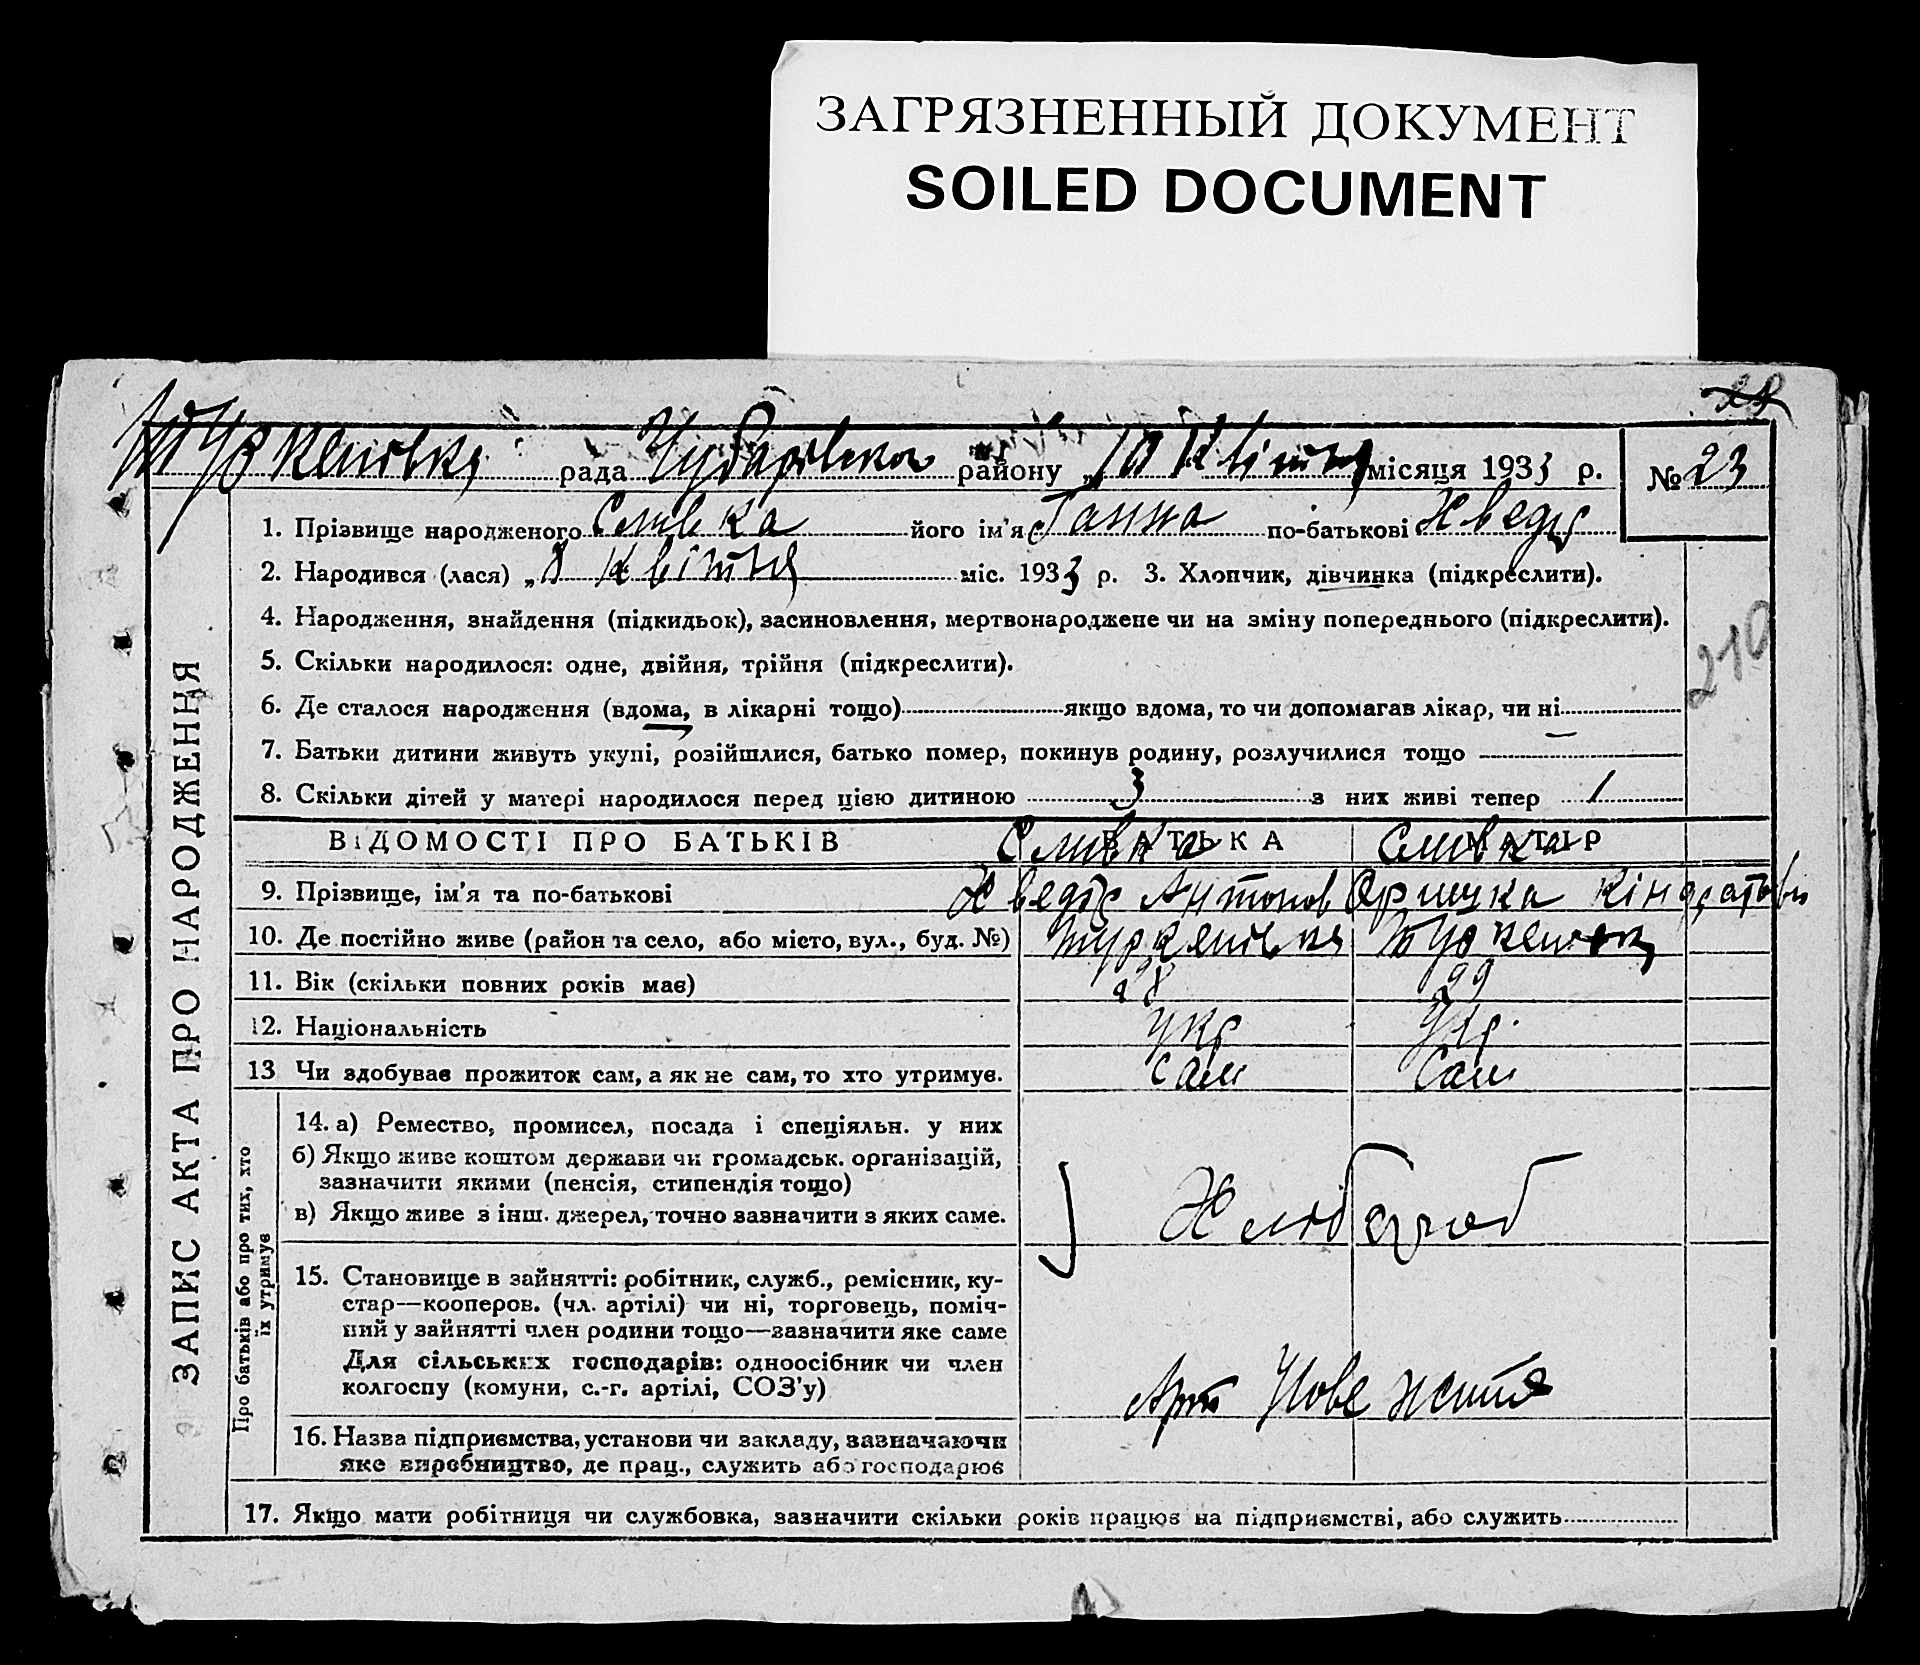 ЗАГРЯЗНЕННЫЙ ДОКУМЕНТ
SOILED DOCUMENT
рада Чубарівська району „10 Квітня місяця 1933 р.
№ 23
ЗАПИС АКТА ПРО НАРОДЖЕННЯ
1. Прізвище народженого Сливка його ім'я Ганна по-батькові Хведір
2. Народився (лася) „8 Квітня міс. 1933 р. 3. Хлопчик, дівчинка (підкреслити).
4. Народження, знайдення (підкидьок), засиновлення, мертвонароджене чи на зміну попереднього (підкреслити).
5. Скільки народилося: одне, двійня, трійня (підкреслити).
6. Де сталося народження (вдома, в лікарні тощо) якщо вдома, то чи допомагав лікар, чи ні
7. Батьки дитини живуть укупі, розійшлися, батько помер, покинув родину, розлучилися тощо
8. Скільки дітей у матері народилося перед цією дитиною 3 з них живі тепер 1
210
ВІДОМОСТІ ПРО БАТЬКІВ БАТЬКА МАТІР
Сливка Сливка
9. Прізвище, ім'я та по-батькові Хведір Антонов Оришка Кіндратови
10. Де постійно живе (район та село, або місто, вул., буд. №)
11. Вік (скільки повних років має) 28 29
12. Національність укр укр.
13 Чи здобуває прожиток сам, а як не сам, то хто утримує. сам сам
Про батьків або про тих, хто їх утримує
14. а) Ремество, промисел, посада і спеціяльн. у них
б) Якщо живе коштом держави чи громадськ. організацій,
зазначити якими (пенсія, стипендія тощо)
в) Якщо живе з інш. джерел, точно зазначити з яких саме.
Хлібороб
15. Становище в зайнятті: робітник, служб., ремісник, ку-
стар—кооперов. (чл. артілі) чи ні, торговець, поміч-
ний у зайнятті член родини тощо—зазначити яке саме
Для сільських господарів: одноосібник чи член
колгоспу (комуни, с.-г. артілі, СОЗ'у)
Арт Нове життя
16. Назва підприємства, установи чи закладу, зазначаючи
яке виробництво, де прац., служить або господарює
17. Якщо мати робітниця чи службовка, зазначити скільки років працює на підприємстві, або служить